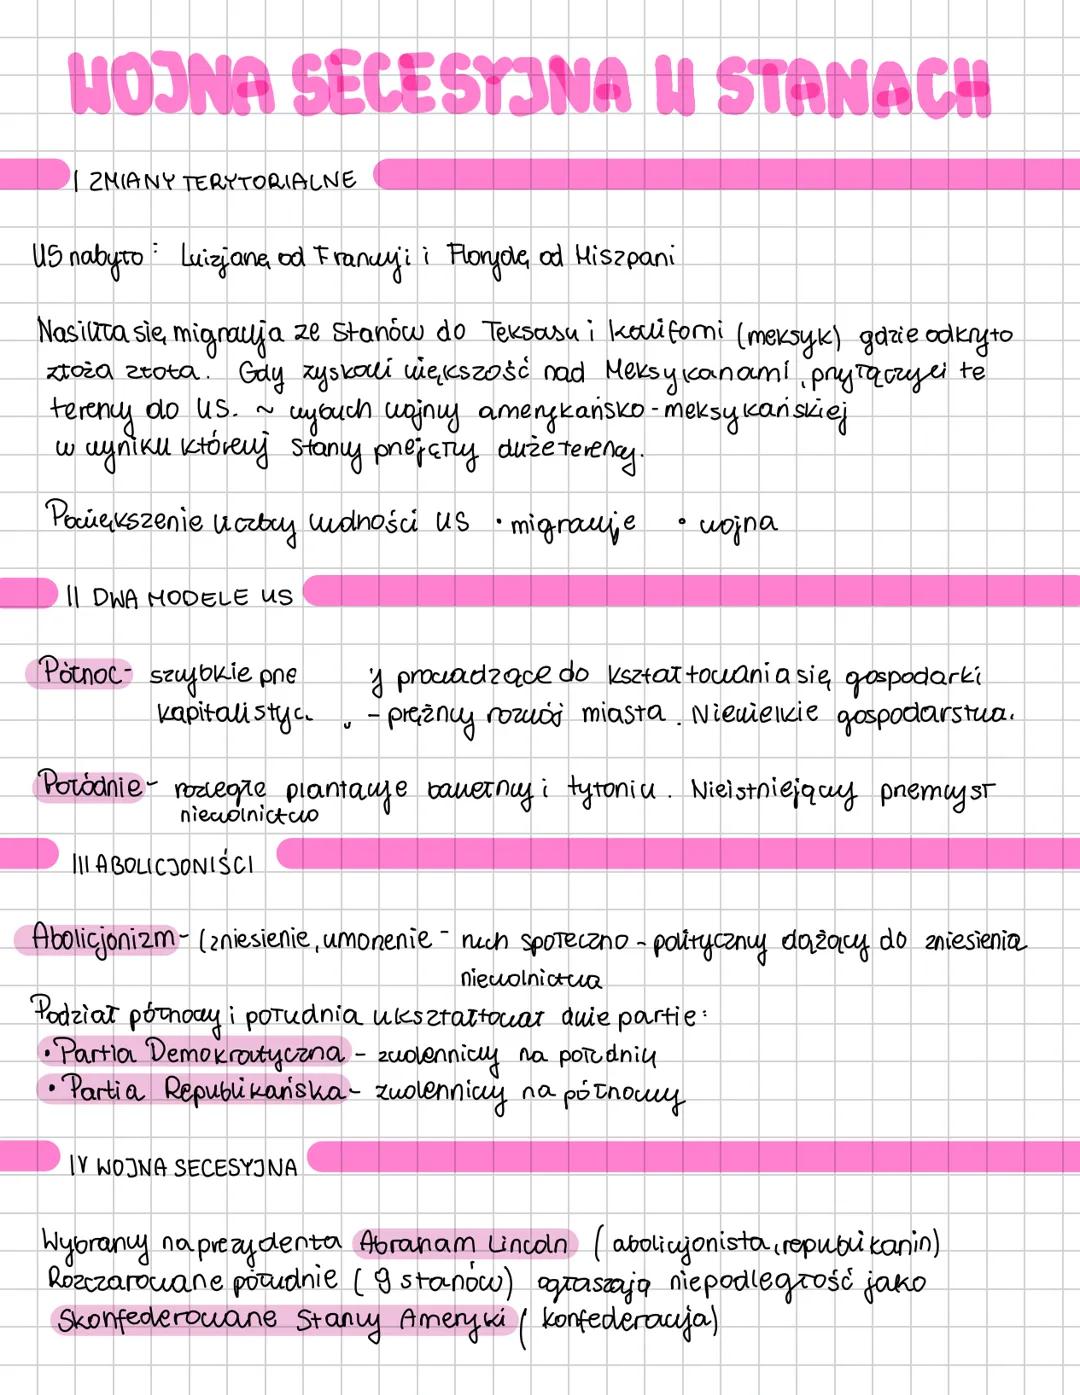 WOJNA SECESYJNA W STANACH
I ZMIANY TERYTORIALNE
US nabyto: Luizjanę od Francji i Florydę od Hiszpani
Nasiliła się migracja ze Stanów do Teksasu i kaliforni (meksyk) gdzie odkryto
złoża złota. Gdy zyskali większość nad Meksykanami, przyłączyli te
tereny do US. ~ wybuch wojny amerykańsko-meksykańskiej
w wyniku której Stany przejęły duże tereny.
Powiększenie liczby ludności US • migracje • wojna
II DWA MODELE US
Północ- szybkie prze y prowadzące do kształtowania się gospodarki
kapitalistyc. - prężny rozwój miasta. Niewielkie gospodarstwa.
Połódnie- rozległe plantacje bawełny i tytoniu. Nieistniejący przemysł
niewolnictwo
III ABOLICJONIŚCI
Abolicjonizm- (zniesienie, umorzenie - ruch społeczno-polityczny dążący do zniesienia
niewolnictwa
Podział północy i południa ukształtował dwie partie:
• Partia Demokratyczna - zwolennicy na połudńiu
• Partia Republikańska- zwolennicy na północy
IV WOJNA SECESYJNA
Wybrany na prezydenta Abraham Lincoln (abolicjonista, republikanin)
Rozczarowane południe (9 stanów) ogłaszają niepodległość jako
Skonfederowane Stany Ameryki (konfederacja)